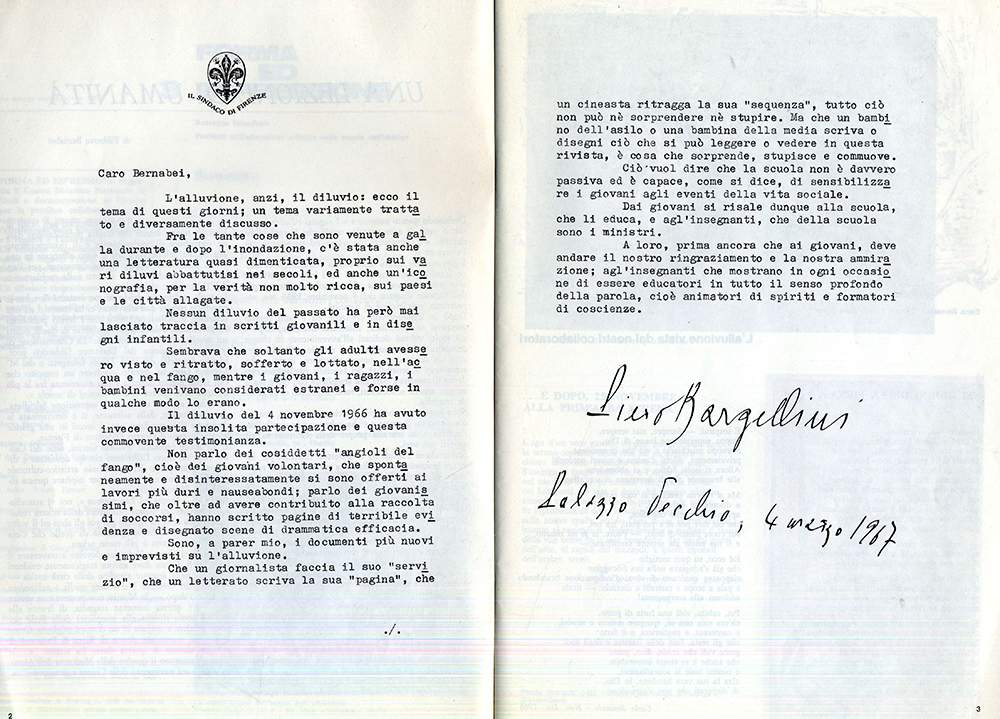 IL SINDACO DI FIRENZE
Caro Bernabei,
L'alluvione, anzi, il diluvio: ecco il
tema di questi giorni; un tema variamente tratta
to e diversamente discusso.
Fra le tante cose che sono venute a gal
la durante e dopo l'inondazione, c'è stata anche
una letteratura quasi dimenticata, proprio sui va
ri diluvi abbattutisi nei secoli, ed anche un'ico
nografia, per la verità non molto ricca, sui paesi
e le città allagate.
Nessun diluvio del passato ha però mai
lasciato traccia in scritti giovanili e in dise
gni infantili.
Sembrava che soltanto gli adulti avesse
ro visto e ritratto, sofferto e lottato, nell'ac
qua e nel fango, mentre i giovani, i ragazzi, i
bambini venivano considerati estranei e forse in
qualche modo lo erano.
Il diluvio del 4 novembre 1966 ha avuto
invece questa insolita partecipazione e questa
commovente testimonianza.
Non parlo dei cosiddetti "angioli del
fango", cioè dei giovani volontari, che sponta
neamente e disinteressatamente si sono offerti ai
lavori più duri e nauseabondi; parlo dei giovanis
simi, che oltre ad avere contribuito alla raccolta
di soccorsi, hanno scritto pagine di terribile evi
denza e disegnato scene di drammatica efficacia.
Sono, a parer mio, i documenti più nuovi
e imprevisti su l'alluvione.
Che un giornalista faccia il suo "servi
zio", che un letterato scriva la sua "pagina", che
./.
2
un cineasta ritragga la sua "sequenza", tutto ciò
non può nè sorprendere nè stupire. Ma che un bambi
no dell'asilo o una bambina della media scriva o
disegni ciò che si può leggere o vedere in questa
rivista, è cosa che sorprende, stupisce e commuove.
Ciò vuol dire che la scuola non è davvero
passiva ed è capace, come si dice, di sensibilizza
re i giovani agli eventi della vita sociale.
Dai giovani si risale dunque alla scuola,
che li educa, e agl'insegnanti, che della scuola
sono i ministri.
A loro, prima ancora che ai giovani, deve
andare il nostro ringraziamento e la nostra ammira
zione; agl'insegnanti che mostrano in ogni occasio
ne di essere educatori in tutto il senso profondo
della parola, cioè animatori di spiriti e formatori
di coscienze.
Piero Bargellini
Palazzo Vecchio, 4 marzo 1967
3